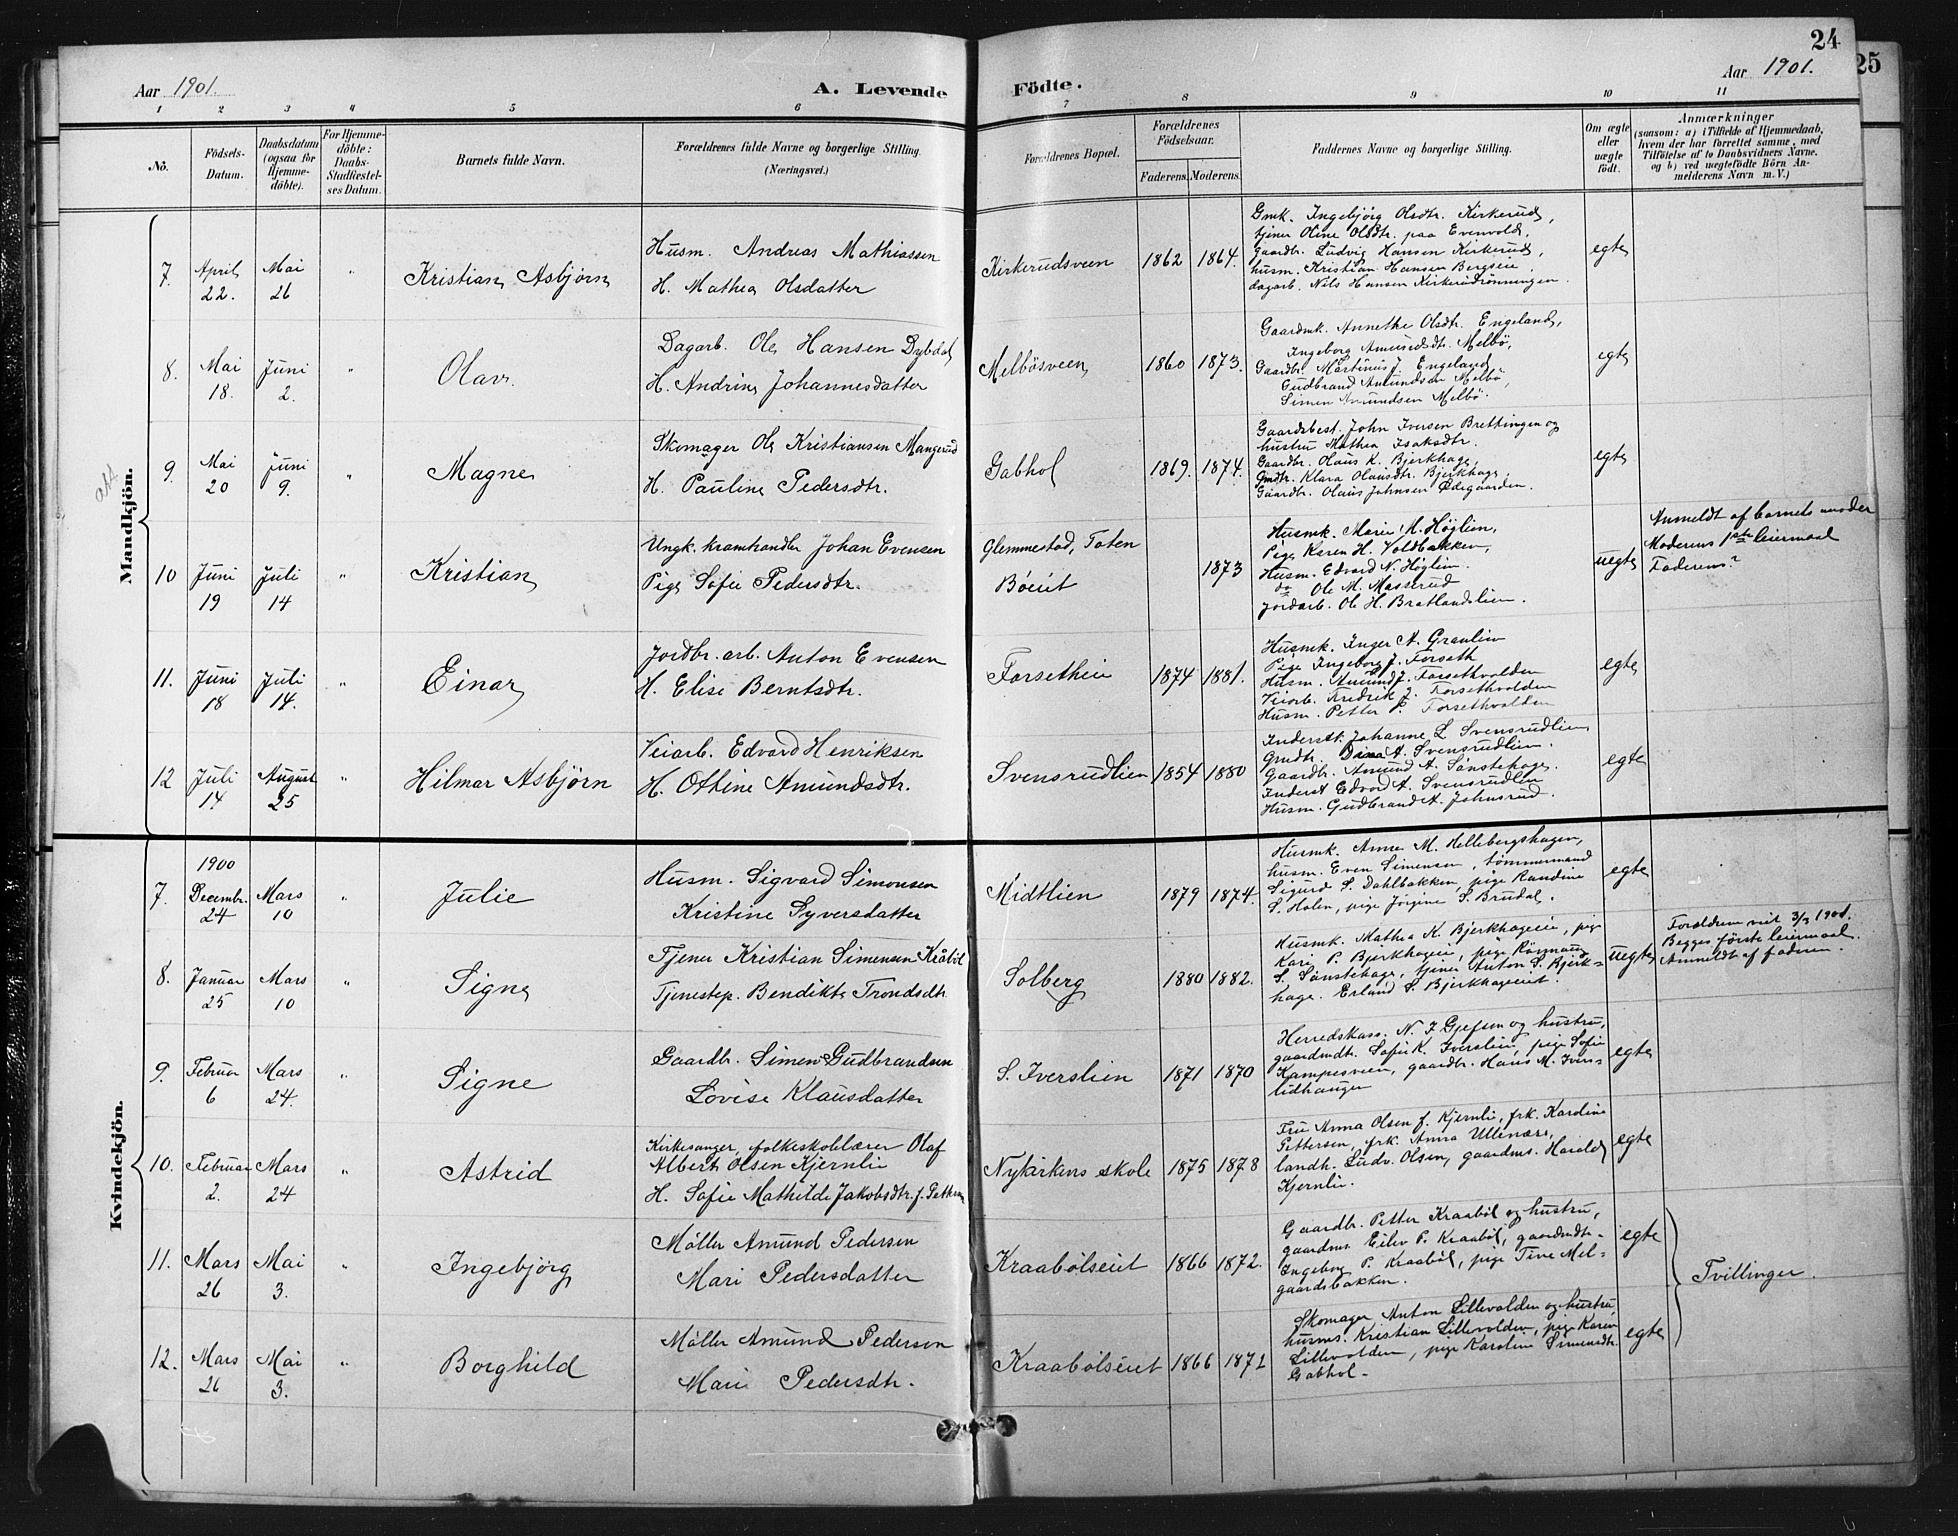 24
25
Aar 1901.
A. Levende Födte.
Aar 1901.
1 2 3 4 5 6 7 8 9 10 11
No.
Födsels-Datum.
Daabsdatum (ogsaa for Hjemmedöbte).
For Hjemmedöbte: Daabs-Stadfæstelses Datum.
Barnets fulde Navn.
Forældrenes fulde Navne og borgerlige Stilling. (Næringsvei.)
Forældrenes Bopæl.
Forældrenes Födselsaar.
Faderens. Moderens.
Faddernes Navne og borgerlige Stilling.
Om ægte eller uægte födt.
Anmærkninger
(saasom: a) i Tilfælde af Hjemmedaab,
hvem der har forrettet samme, med
Tilföielse af to Daabsvidners Navne.
og b) ved uægtefödte Börn Anmelderens Navn m. V.)
Mandkjön.
7. April 22. Mai 26 " Kristian Asbjørn
Husm. Andreas Mathiassen
H. Mathea Olsdatter
Kirkerudsveen 1862 1864.
Gmk. Ingebjörg Olsdtr. Kirkerud,
tjener Oline Olsdtr. paa Evenvold,
gaardbr. Ludvig Hansen Kirkerud,
husm. Kristian Hansen Bergseie,
dagarb. Nils Hansen Kirkerudrønningen.
egte
8. Mai 18. Juni 2. " Olav.
Dagarb. Ole Hansen Dybdal
H. Andrine Johannesdatter
Melbösveen 1860 1873.
Gaardmk. Annethe Olsdtr. Engeland,
Ingeborg Amundsdtr. Melbö,
Gaardbr. Martinus J. Engeland,
Gudbrand Amundsen Melbö,
Simen Amundsen Melbö.
egte
9. Mai 20 Juni 9. " Magne
Skomager Ole Kristiansen Mangerud
H. Pauline Pedersdtr.
Gabhol 1869. 1874.
Gaardsbest. John Iversen Brettingen og
hustru Mathea Isaksdtr.
Gaardbr. Olaus K. Bjerkhage,
Gmdtr. Klara Olausdtr. Bjerkhage,
Gaardbr. Olaus Johnsen Ødegaarden.
egte
10 Juni 19 Juli 14 " Kristian
Ungk. kramhandler Johan Evensen
Pige Sofie Pedersdtr.
Glemmestad, Toten
Böeiet 1873
Husmk. Marie M. Höglien,
Pige Karen H. Voldbakken,
Husm. Edvard N. Höglien.
do Ole M. Masserud
Jordarb. Ole H. Bratlandslien.
uegte
Anmeldt af barnets moder
Moderens 1ste leiermaal
Faderens?
11. Juni 18 Juli 14. " Einar
Jordbr. arb. Anton Evensen
H. Elise Berntsdtr.
Forsethlie 1874 1881.
Husmk. Inger A. Granlien
Pige Ingeborg J. Forseth
Husm. Amund J. Forsethvolden
Veiarb. Fredrik J. Forsethvolden
Husm. Petter P. Forsethvolden
egte
12 Juli 14 August 25 " Hilmar Asbjörn
Veiarb. Edvard Henriksen
H. Othine Amundsdtr.
Svensrudlien 1854 1880
Inderstk. Johanne L. Svensrudlien
Gmdtr. Dina A. Svensrudlien.
Gaardbr. Amund A. Sönstehage.
Inderst Edvard A. Svensrudlien
Husm. Gudbrand A. Johnsrud.
egte
Kvindekjön.
7. 1900 Decembr. 24 Mars 10 " Julie
Husm. Sigvard Simonsen
Kristine Syversdatter
Midtlien 1879 1874.
Husmk. Anne M. Hellebergshagen,
husm. Even Simensen, tömmermand
Sigurd S. Dahlbakken, pige Randine
S. Holen, pige Jörgine S. Brudal.
egte
8. Januar 25 Mars 10 " Signe
Tjener Kristian Simensen Kråböl
Tjenestep. Bendikte Trondsdtr.
Solberg 1880 1882.
Husmk. Mathea K. Bjerkhageeie, pige
Kari P. Bjerkhageie, pige Rönnaug
S. Sönstehage, tjener Anton S. Bjerk-
hage. Erland S. Bjerkhageeiet.
uegte
Forældrene viet 3/3 1901.
Begges förste leiermaal.
Anmeldt af faderen.
9. Februar 6 Mars 24. " Signe
Gaardbr. Simen Gudbrandsen
Lovise Klausdatter
S. Iverslien 1871 1870
Herredskass. N. J. Gjefsen og hustru,
gaardmdtr. Sofie K. Iverslien, pige Sofie
Kampesveen, gaardbr. Hans M. Ivers-
lidhaugen
egte
10. Februar 2. Mars 24 " Astrid
Kirkesanger, folkeskolelærer Olaf
Albert Olsen Kjernlie
H. Sofie Mathilde Jakobsdtr. f. Petters.
Nykirkens skole 1875 1878
Fru Anna Olsen f. Kjernlie, frk. Karoline
Pettersen, frk. Anna Ullenære,
landh. Ludv. Olsen, gaardms. Harald
Kjernlie.
egte
11. Mars 26 Mai 3. " Ingebjörg
Möller Amund Pedersen
Mari Pedersdatter
Kraabölseiet 1866 1872.
Gaardbr. Petter Kraaböl og hustru,
gaardms. Eilev P. Kraaböl, gaardmdtr.
Ingeborg P. Kraaböl, pige Tine Mel-
gaardsbakken.
egte
Tvillinger.
12. Mars 26 Mai 3. " Borghild
Möller Amund Pederson
Mari Pedersdtr.
Kraabölseiet 1866 1872
Skomager Anton Lillevolden og hustru,
husms. Kristian Lillevolden, pige Karen
Lillevolden, pige Karoline Simensdtr.
Gabhol.
egte